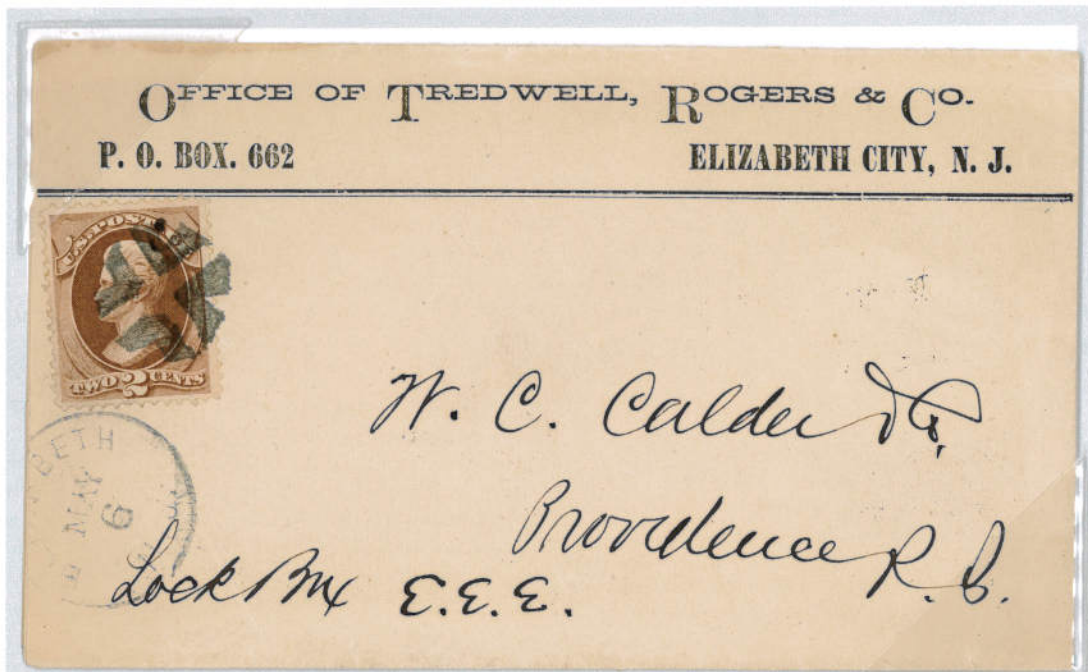 OFFICE OF TREDWELL, ROGERS & CO.
P. O. BOX. 662 ELIZABETH CITY, N. J.
U.S. POSTA
TWO 2 CENTS
W. C. Calder & Co.
Providence
R. I.
BETH
MAY
6
Lock Box E.E.E.